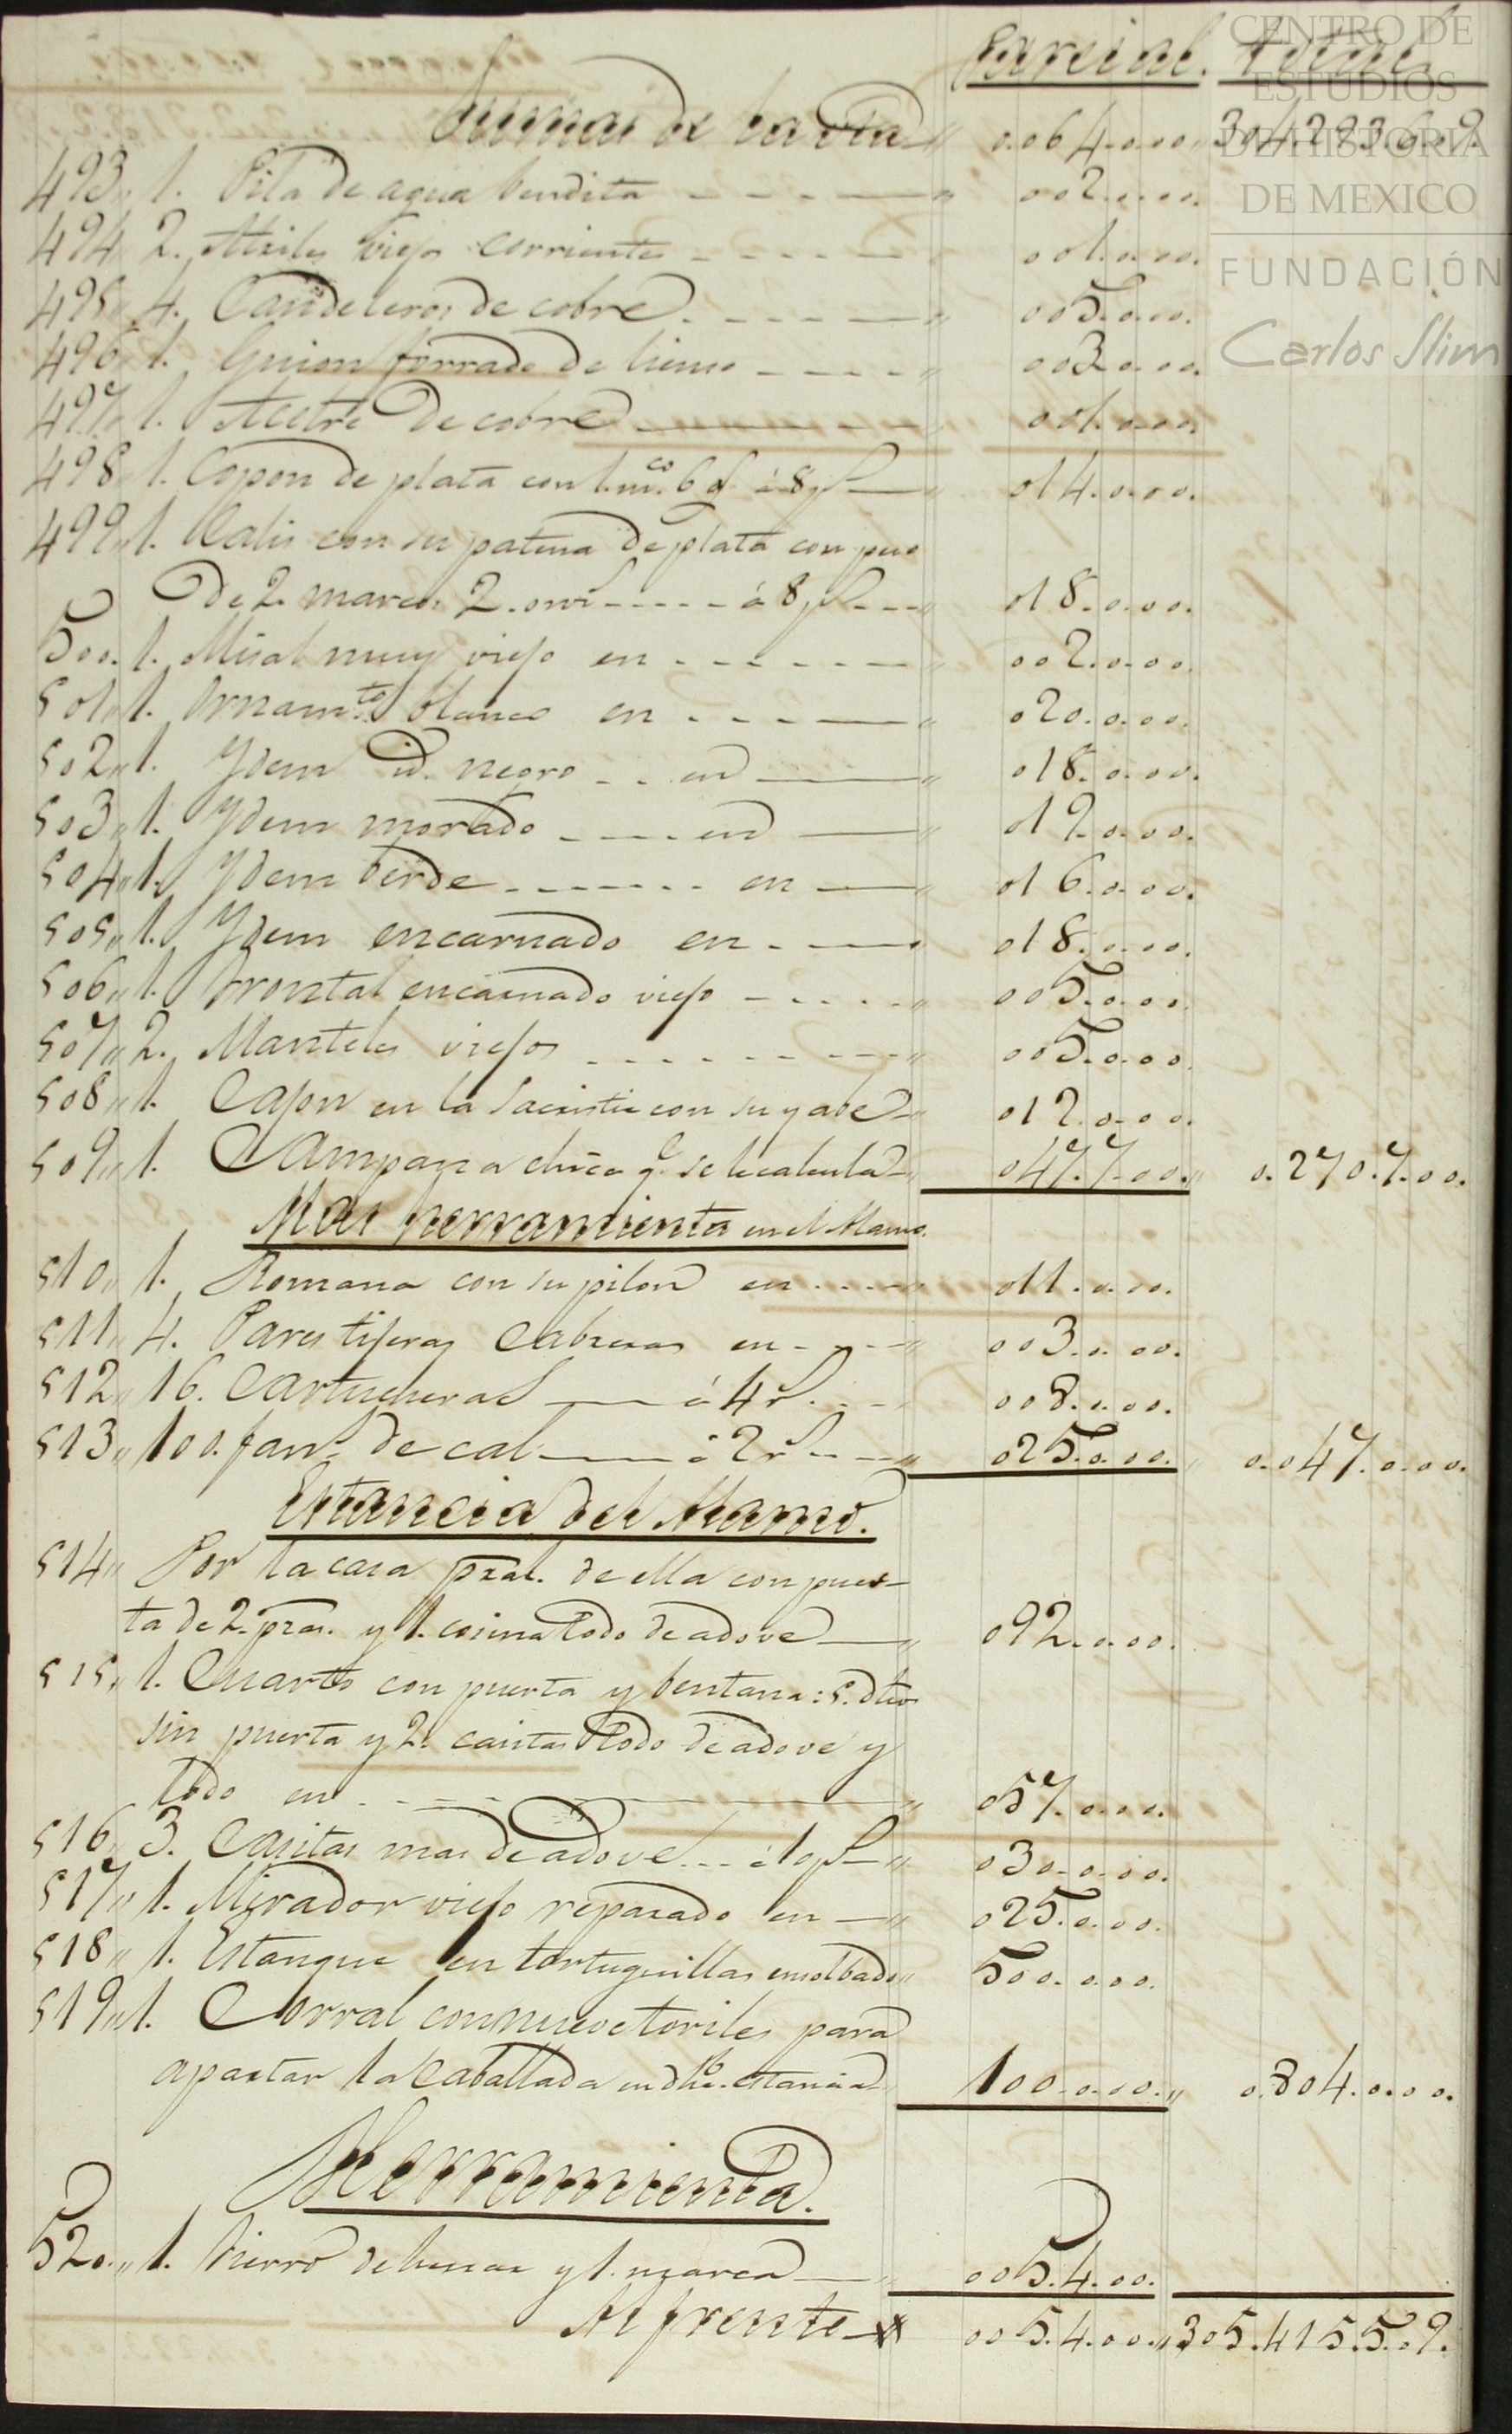 Parcial. Total.
Sumas de la vta. " 0.064.0.00. " 304.293.6.09.
493 " 1. Pila de agua bendita " 002.0.00.
494 2. Atriles viejos corrientes 001.0.00.
495 " 4. Candeleros de cobre " 005.0.00.
496 1. Guion forrado de lienso " 003.0.00.
497 " 1. Acetre de cobre " 001.0.00.
498 1. Copon de plata con 1. mco. 6 á 8 ps. " 014.0.00.
499 " 1. Calis con su patena de plata con peso
de 2. marcos 2. onzs. á 8 ps. " 018.0.00.
500. 1. Misal muy viejo en " 002.0.00.
501 " 1. Ornamto. blanco en " 020.0.00.
502 " 1. Ydem id. negro en " 018.0.00.
503 " 1. Ydem morado en " 019.0.00.
504 " 1. Ydem berde en " 016.0.00.
505 " 1. Ydem encarnado en 018.0.00.
506 " 1. Frontal encarnado viejo " 005.0.00.
507 " 2. Manteles viejos " 005.0.00.
508 " 1. Cajon en la Sacristia con su yabe " 012.0.00.
509 " 1. Campana chica qe. se le calcula " 047.7.00. " 0.270.7.00.
Mas herramienta en el Alamo.
510 " 1. Romana con su pilon en " 011.0.00.
511 " 4. Pares tijeras Cabreras en " 003.0.00.
512 " 16. Cartucheras á 4 rs. 008.0.00.
513 " 100. fans. de cal á 2 rs. " 025.0.00. " 0.047.0.00.
Estancia del Alamo.
514 " Por la casa pral. de ella con puer-
ta de 2. pzas. y 1. cosina todo de adove " 092.0.00.
515 " 1. Cuarto con puerta y bentana: 5. dhos
sin puerta y 2. casitas todo de adove y
todo en " 057.0.00.
516 " 3. Casitas mas de adove á 10 ps. " 030.0.00.
517 " 1. Mirador viejo reparado en " 025.0.00.
518 " 1. Estanque en tortuguillas ensolbado " 500.0.00.
519 " 1. Corral con nueve toriles para
apartar la Caballada en dha. estancia 100.0.00. " 0.804.0.00.
Herramienta.
520. " 1. hierro de herrar y 1. marca " 005.4.00.
Al frente 005.4.00. " 305.415.5.09.
CENTRO DE
ESTUDIOS
DE HISTORIA
DE MEXICO
FUNDACIÓN
Carlos Slim